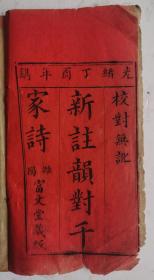 光緒丁酉年鐫
校對無訛
新註韻對千
家詩
富文堂藏板